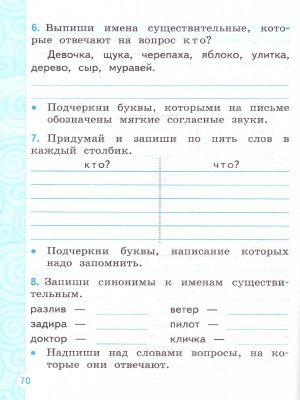 6. Выпиши имена существительные, кото-
рые отвечают на вопрос кто?
Девочка, щука, черепаха, яблоко, улитка,
дерево, сыр, муравей.
• Подчеркни буквы, которыми на письме
обозначены мягкие согласные звуки.
7. Придумай и запиши по пять слов в
каждый столбик.
кто? что?
• Подчеркни буквы, написание которых
надо запомнить.
8. Запиши синонимы к именам существи-
тельным.
разлив — ветер —
задира — пилот —
доктор — кличка —
• Надпиши над словами вопросы, на ко-
торые они отвечают.
70